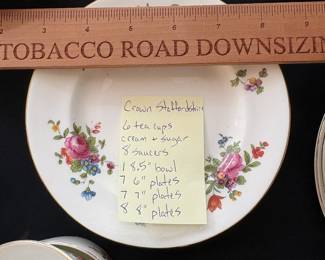 1 2 3 4 5 6 7 8 9
TOBACCO ROAD DOWNSIZIN
Crown Staffordshire
6 teacups
cream + sugar
8 saucers
1 8.5" bowl
7 6" plates
7 7" plates
8 8" plates